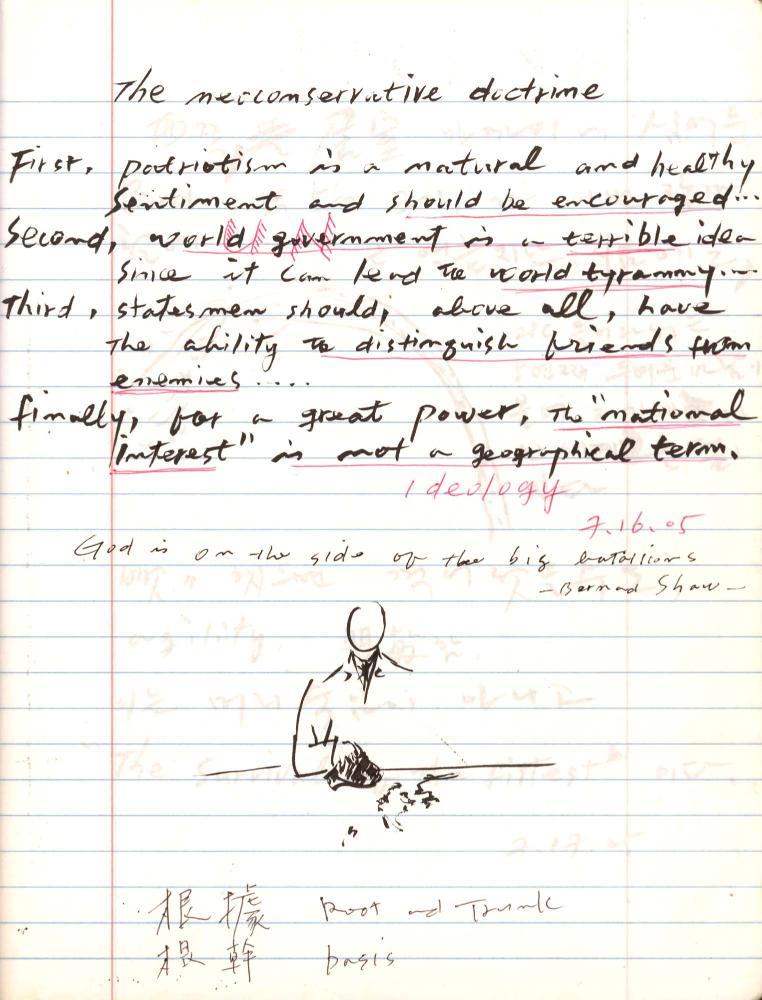 The neoconservative doctrine
First, patriotism is a natural and healthy
sentiment and should be encouraged...
Second, world government is a terrible idea
since it can lead to world tyranny...
Third, statesmen should, above all, have
the ability to distinguish friends from
enemies ....
finally, for a great power, the "national
interest" is not a geographical term.
ideology
7.16.05
God is on the side of the big batallions
-Bernad Shaw-
根據 Root and Trunk
根幹 basis
agility
"The Survival of the fittest"
2.13.05